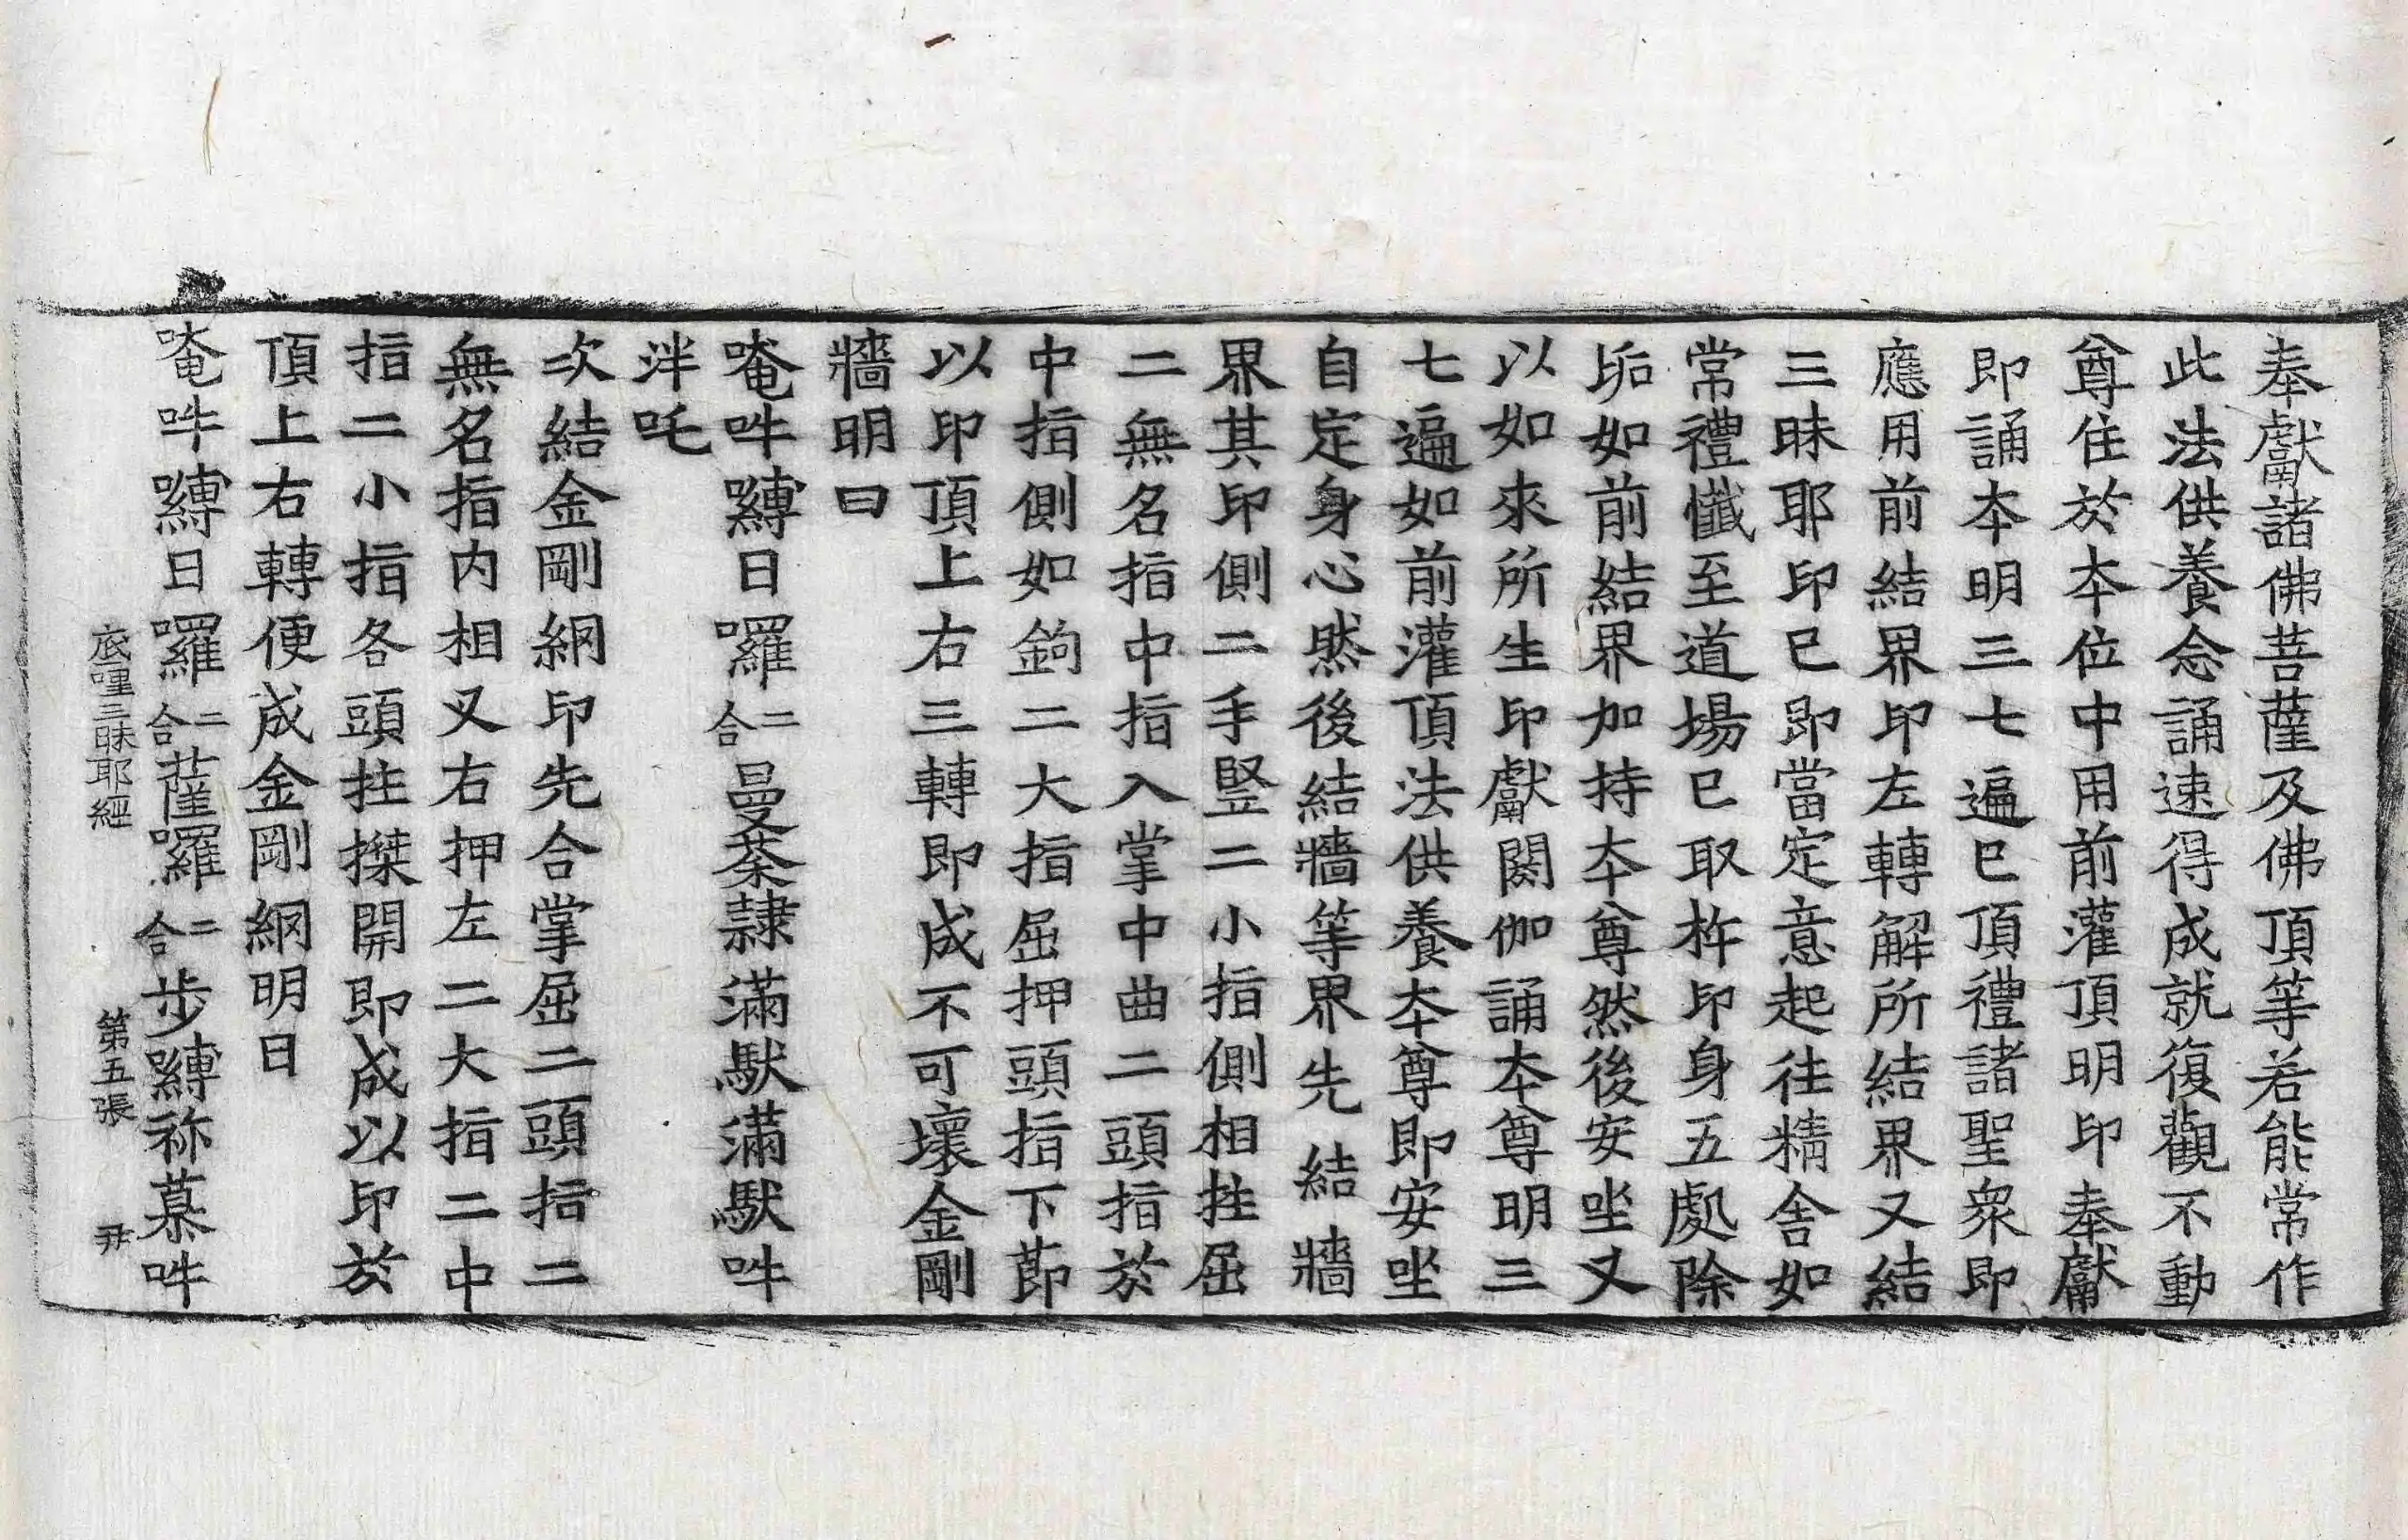 奉獻諸佛菩薩及佛頂等若能常作
此法供養念誦速得成就復觀不動
尊住於本位中用前灌頂明印奉獻
即誦本明三七遍已頂禮諸聖衆即
應用前結界印左轉解所結界又結
三昧耶印已即當定意起往精舍如
常禮懺至道場已取杵印身五處除
垢如前結界加持本尊然後安坐又
以如來所生印獻閼伽誦本尊明三
七遍如前灌頂法供養本尊即安坐
自定身心然後結牆等界先結牆
界其印側二手竪二小指側相拄屈
二無名指中指入掌中曲二頭指於
中指側如鉤二大指屈押頭指下莭
以印頂上右三轉即成不可壞金剛
牆明曰
唵吽嚩日囉二合曼荼隷滿馱滿馱吽
泮吒
次結金剛網印先合掌屈二頭指二
無名指内相叉右押左二大指二中
指二小指各頭拄搩開即成以印於
頂上右轉便成金剛網明曰
唵吽嚩日囉二合薩囉二合步嚩祢慕吽
底哩三昧耶經 第五張 尹